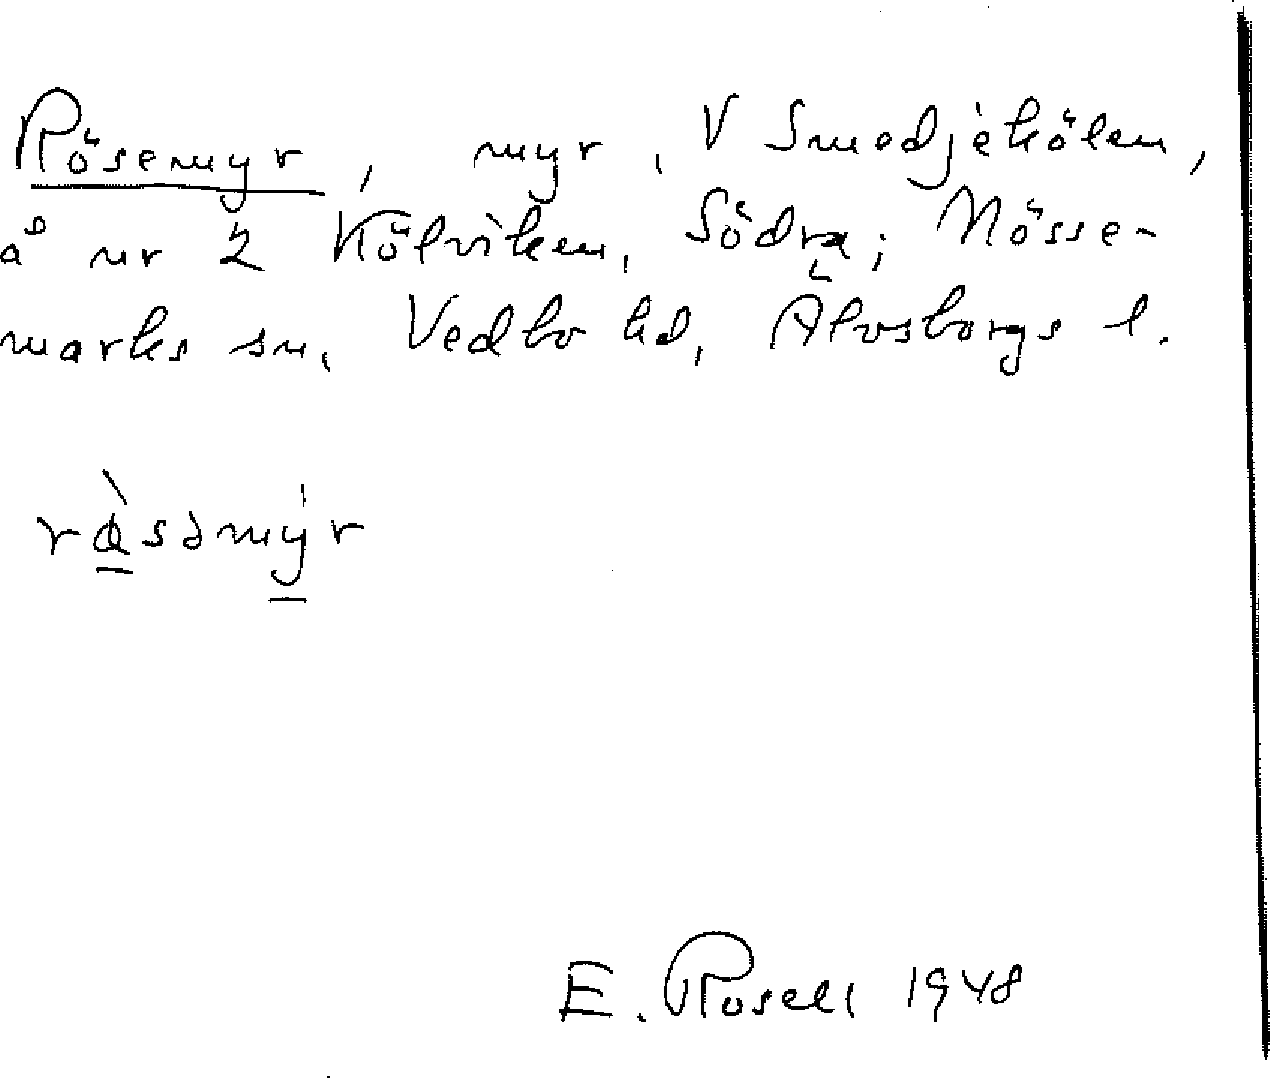 Rösemyr, myr, V Smedjekölen,
å nr 2 Kölviken, Södra; Nösse-
marks sn, Vedbo hd, Älvsborgs l.
rɑ̀səmy̍r
E. Rosell 1948